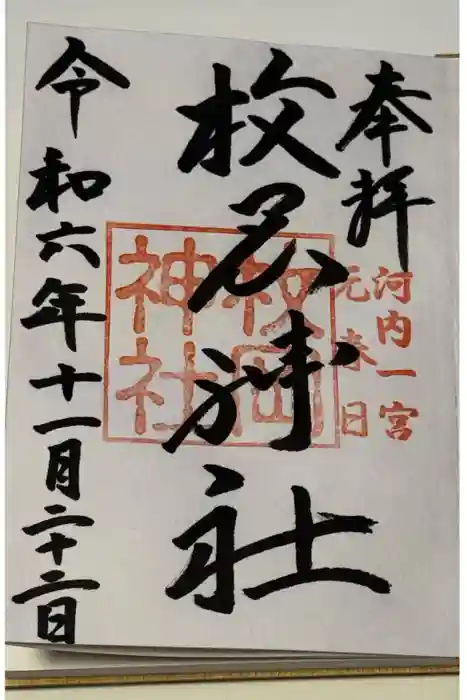 奉拝
河内一宮
元春日
枚岡神社
枚岡
神社
令和六年十一月二十二日